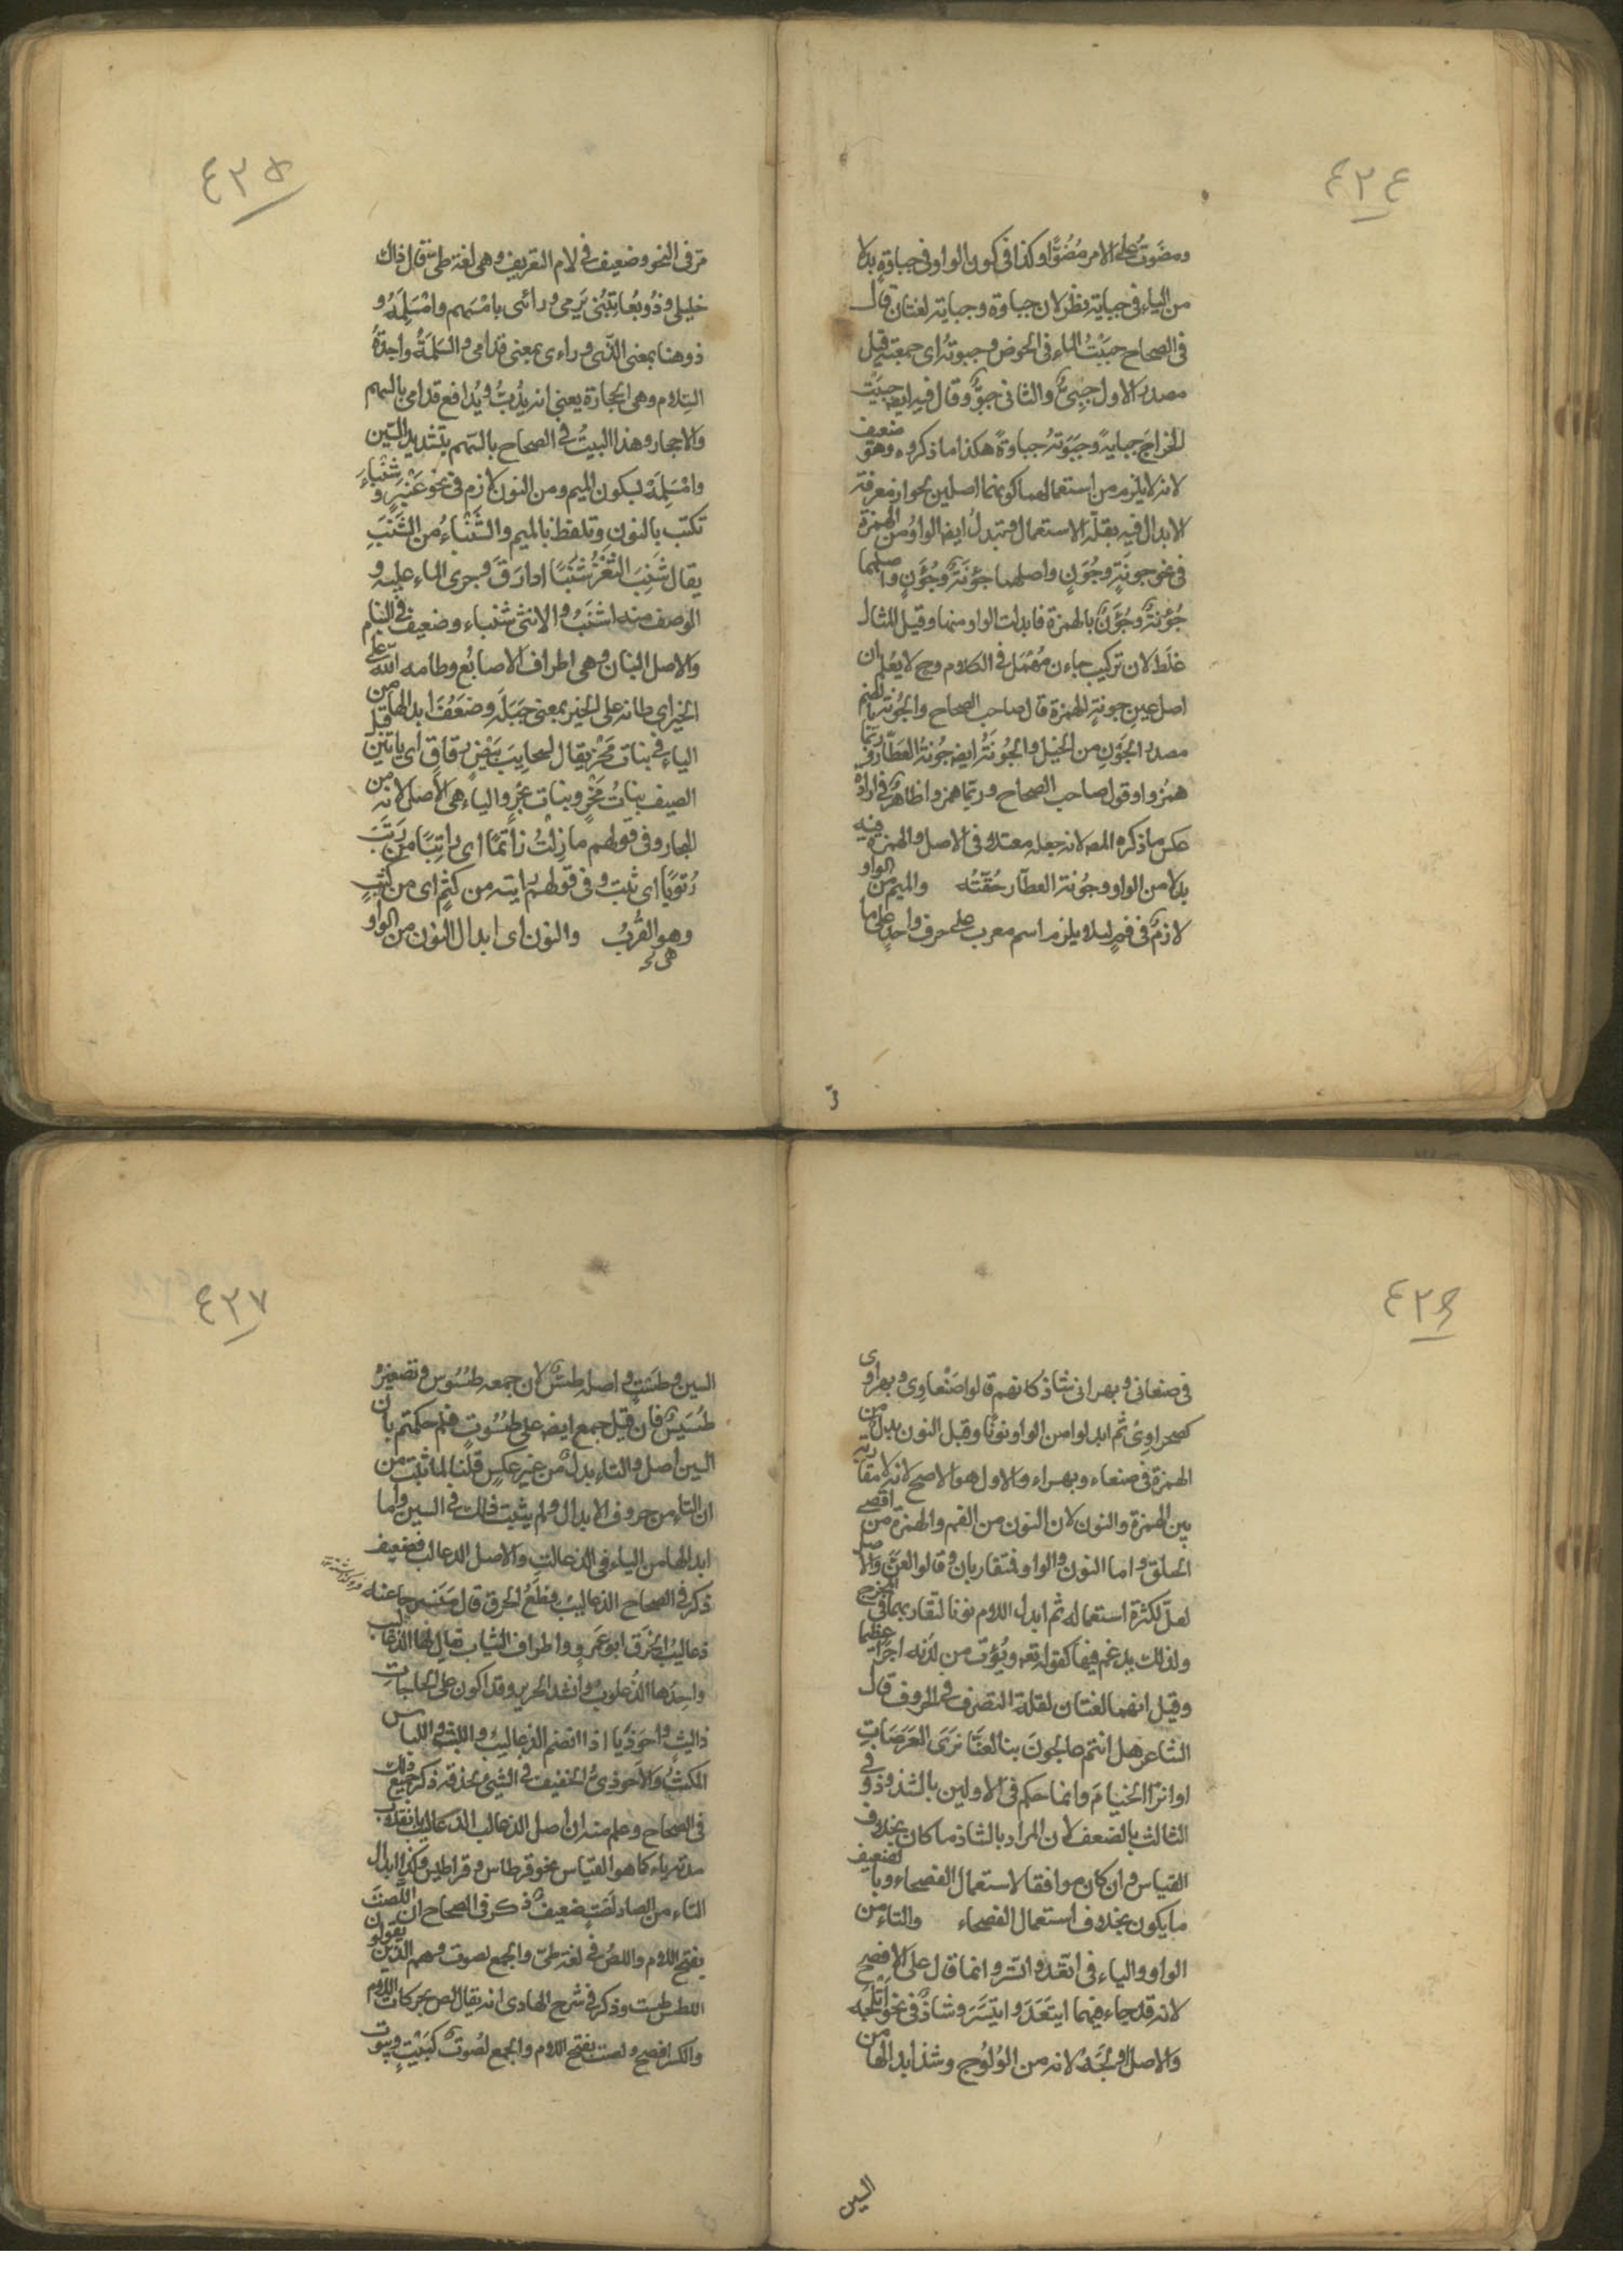 ٤٣٤
ومضَوتُ على الامر مُضُوًّا وكذا فى كون الواو فى جباوة بدلا
من الياء فى جباية نظر لان جباوة وجباية لغتان قال
فى الصحاح جبَيْتُ الماء فى الحوض وجبوتُهُ اى جمعته قيل
مصدر الاول جبىٌ والثانى جبوٌ وقال فيه ايضا جبَيْت
الخراجَ جبايةً وجَبَوتهُ جباوةً هكذا ما ذكروه وهو ضعيف
لانه لا يلزم من استعمالهما كونهما اصلين لجواز معرفة
الابدال فيه بقلة الاستعمال وتبدلُ ايضا الواوُ من الهمزة
فى نحو جونَةٍ وجُوَنٍ واصلهما جؤنَةٌ وجُؤَنٌ واصلهما
جُؤْنَةٌ وجُؤَنٌ بالهمزة فابدلت الواو منها وقيل المثال
غلَط لان تركيب جاءن مُهْمَل فى الكلام وح لا يعلم ان
اصل عين جونةٍ الهمزة قال صاحب الصحاح والجُونَة بالضم
مصدر الجَوْنِ من الخيل والجُونَةُ ايضا جُونَةُ العطّار وربّما
همزوا وقول صاحب الصحاح وربّما همزوا ظاهرٌ فى ارادة
عكس ما ذكره المصـ لانه جعله معتلا فى الاصل والهمزة فيه
بدلا من الواو وجُونة العطّار حُقّتُه والميم من الواو
لازمٌ فى فمٍ لئلا يلزم اسم معرب على حرف واحدٍ على ما
٤٣٥
مرّ فى النحو وضعيف فى لام التعريف وهى لغة طىّ قال ذاك
خليلى وذُو يُعاتِبُنى يَرمى ورائى بامْسَهم وامْسَلِمَهْ و
ذو هنا بمعنى الذى وراءى بمعنى قدامى والسَلِمَةُ واحدةُ
السِلام وهى الحجارة يعنى انه يذُبُّ ويُدافع قدامى بالسهم
والاحجار وهذا البيتُ فى الصحاح بالسّهم بتشديد السّين
وامْسَلِمَهْ بسكون الميم ومن النون لازم فى نحو عَنْبَرٍ وشَنْباءَ
تكتب بالنون وتلفظ بالميم والشَنْباءُ من الشَنَبِ
يقال شَنِبَ الثغْرُ شَنَبًا اذا رَقَّ وجرى الماء عليه و
الوصف منه اشنَبُ والانثى شنباء وضعيف فى البنام
والاصل البنان وهى اطراف الاصابع وطامه اللّٰه على
الخير اى طانه على الخير بمعنى جبَلَه وضَعُفَ ابدالها من
الياء فى بنات مَخْرٍ يقال لسحايبَ بيضٍ رقاقٍ اى ياتين قبل
الصيف بناتُ مَخْرٍ وبنات بَخْرٍ والياء هى الاصل لانه من
البخار وفى قولهم ما زلتُ راتمًا اى راتبًا من رَتَبَ
رُتوبًا اى ثبت وفى قولهم رايته من كثَمٍ اى من كثَبٍ
وهو القُربُ والنون اى ابدال النون من الواو
هى
٤٣٦
فى صنعانى وبهرانى شاذ كانهم قالوا صَنْعاوِى وبهراوى
كصحراوِىٌ ثم ابدلوا من الواو نونًا وقيل النون بدلٌ من
الهمزة فى صنعاء وبهراء والاول هو الاصح لانه لا مقاربة
بين الهمزة والنون لان النون من الفم والهمزة من اقصى
الحلق واما النون والواو فتقاربان وقالوا لعنّ والاصل
لعلّ لكثرة استعماله ثم ابدل اللام نونا لتقاربهما فى المخرج
ولذلك يدغم فيها كقوله تعـ ويُؤتِ من لدُنه اجرًا عظيما
وقيل انهما لغتان لقلة التصرف فى الحروف قال
الشاعر هل انتم عائجون بنا لعَنّا نرَى العَرَصَاتِ
او اثرَ الخيام وانما حكم فى الاولين بالشذوذ وفى
الثالث بالضعف لان المراد بالشاذ ما كان بخلاف
القياس وان كان موافقا لاستعمال الفصحاء وبالضعيف
ما يكون بخلاف استعمال الفصحاء والتاء من
الواو والياء فى اتّعَد واتّسر وانما قال على الافصح
لانه قد جاء فيهما ايتَعَدَ وايتَسَرَ وشاذٌ فى نحو اتلَجَه
والاصل اولَجَهُ لانه من الوُلوُج وشذ ابدالها من
السين
٤٣٧
السين وطَستٍ واصله طسٌّ لان جمعه طسُوس وتصغيرهُ
طُسَيسٌ فان قيل جمع ايضا على طسُوتٍ فلم حكمتم بان
السين اصل والتاء بدلٌ من غير عكسٍ قلنا لما ثبت من
ان التاء من حروف الابدال ولم يثبت ذلك فى السين واما
ابدالها من الباء فى الذعالت والاصل الذعالب فضعيف
ذكر فى الصحاح الذعاليبُ قِطَعُ الخرق قال منسرحا عنه
ذعاليبُ الخرَق ابو عَمرٍو واطراف الثياب يقال لها الذعاليب
واحدها الذُعلوبُ وانشد لجرير وقد اكون على الحاجات
ذا لبثٍ واحوَذيًّا اذا انضم الذعاليبُ واللبث واللباس
المكثُ والاحوذىُ الخفيف فى الشئ بحذقه ذكر جميع ذلك
فى الصحاح وعلم منه ان اصل الذعالب الذعاليب بانقلاب
مدته ياء كما هو القياس نحو قرطاس وقراطيس وكذا ابدال
التاء من الصاد لَصْتٍ ضعيفٌ ذكر فى الصحاح ان اللَّصْتَ
بفتح اللام واللصُ فى لغة طىّ والجمع لصوت وهم الذين يقولون
للطس طست وذكر فى شرح الهادى انه يقال لص بحركات اللام
والكسر افصح ولصت بفتح اللام والجمع لصُوتٌ كبَيْتٍ وبيُوت